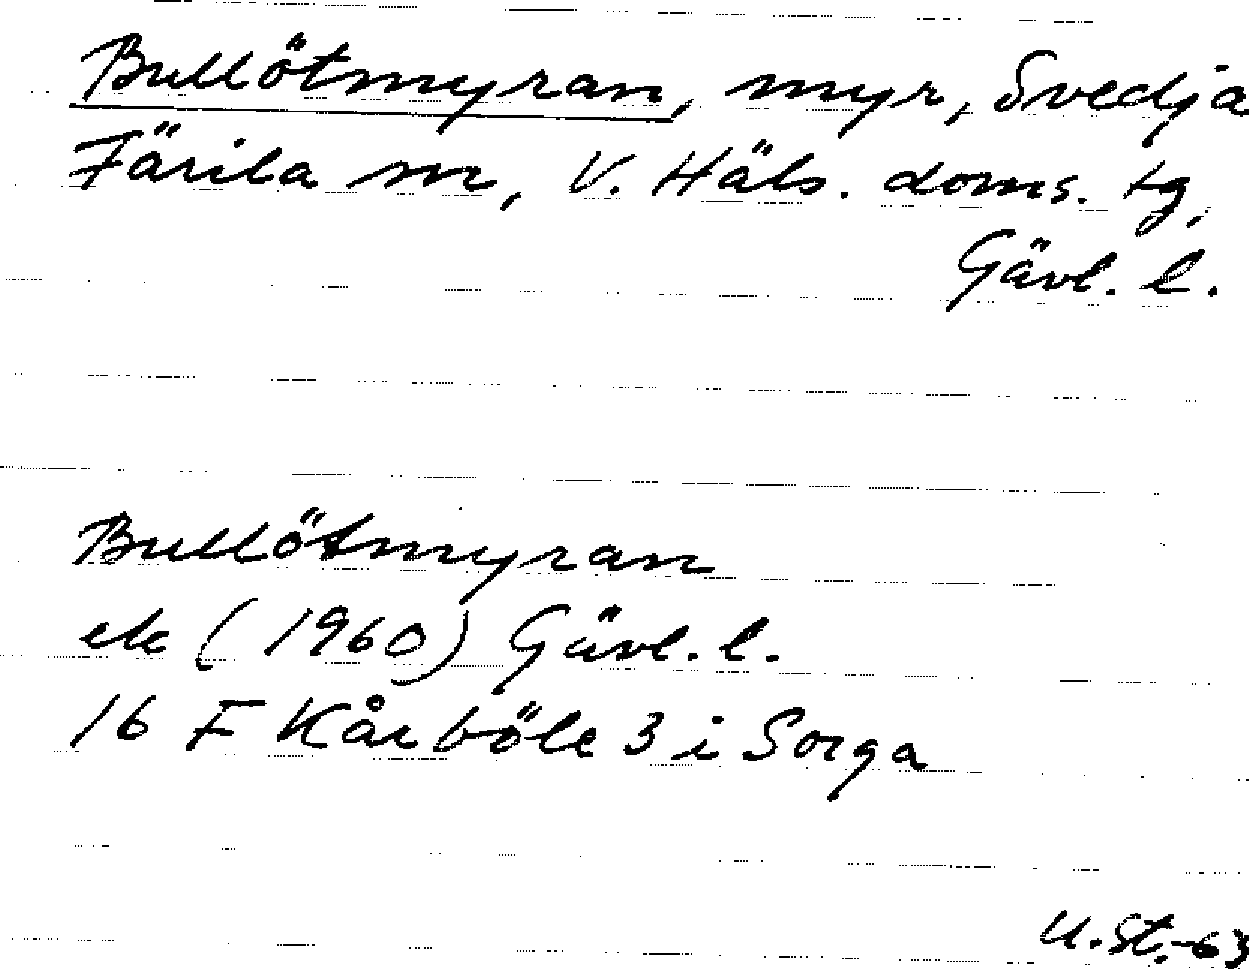 Bullötmyran, myr, Svedja
Färila sn, V. Häls. doms. tg,
Gävl. l.
Bullötmyran
ek (1960) Gävl. l.
16 F Kårböle 3 i Sorga
U. St.-63